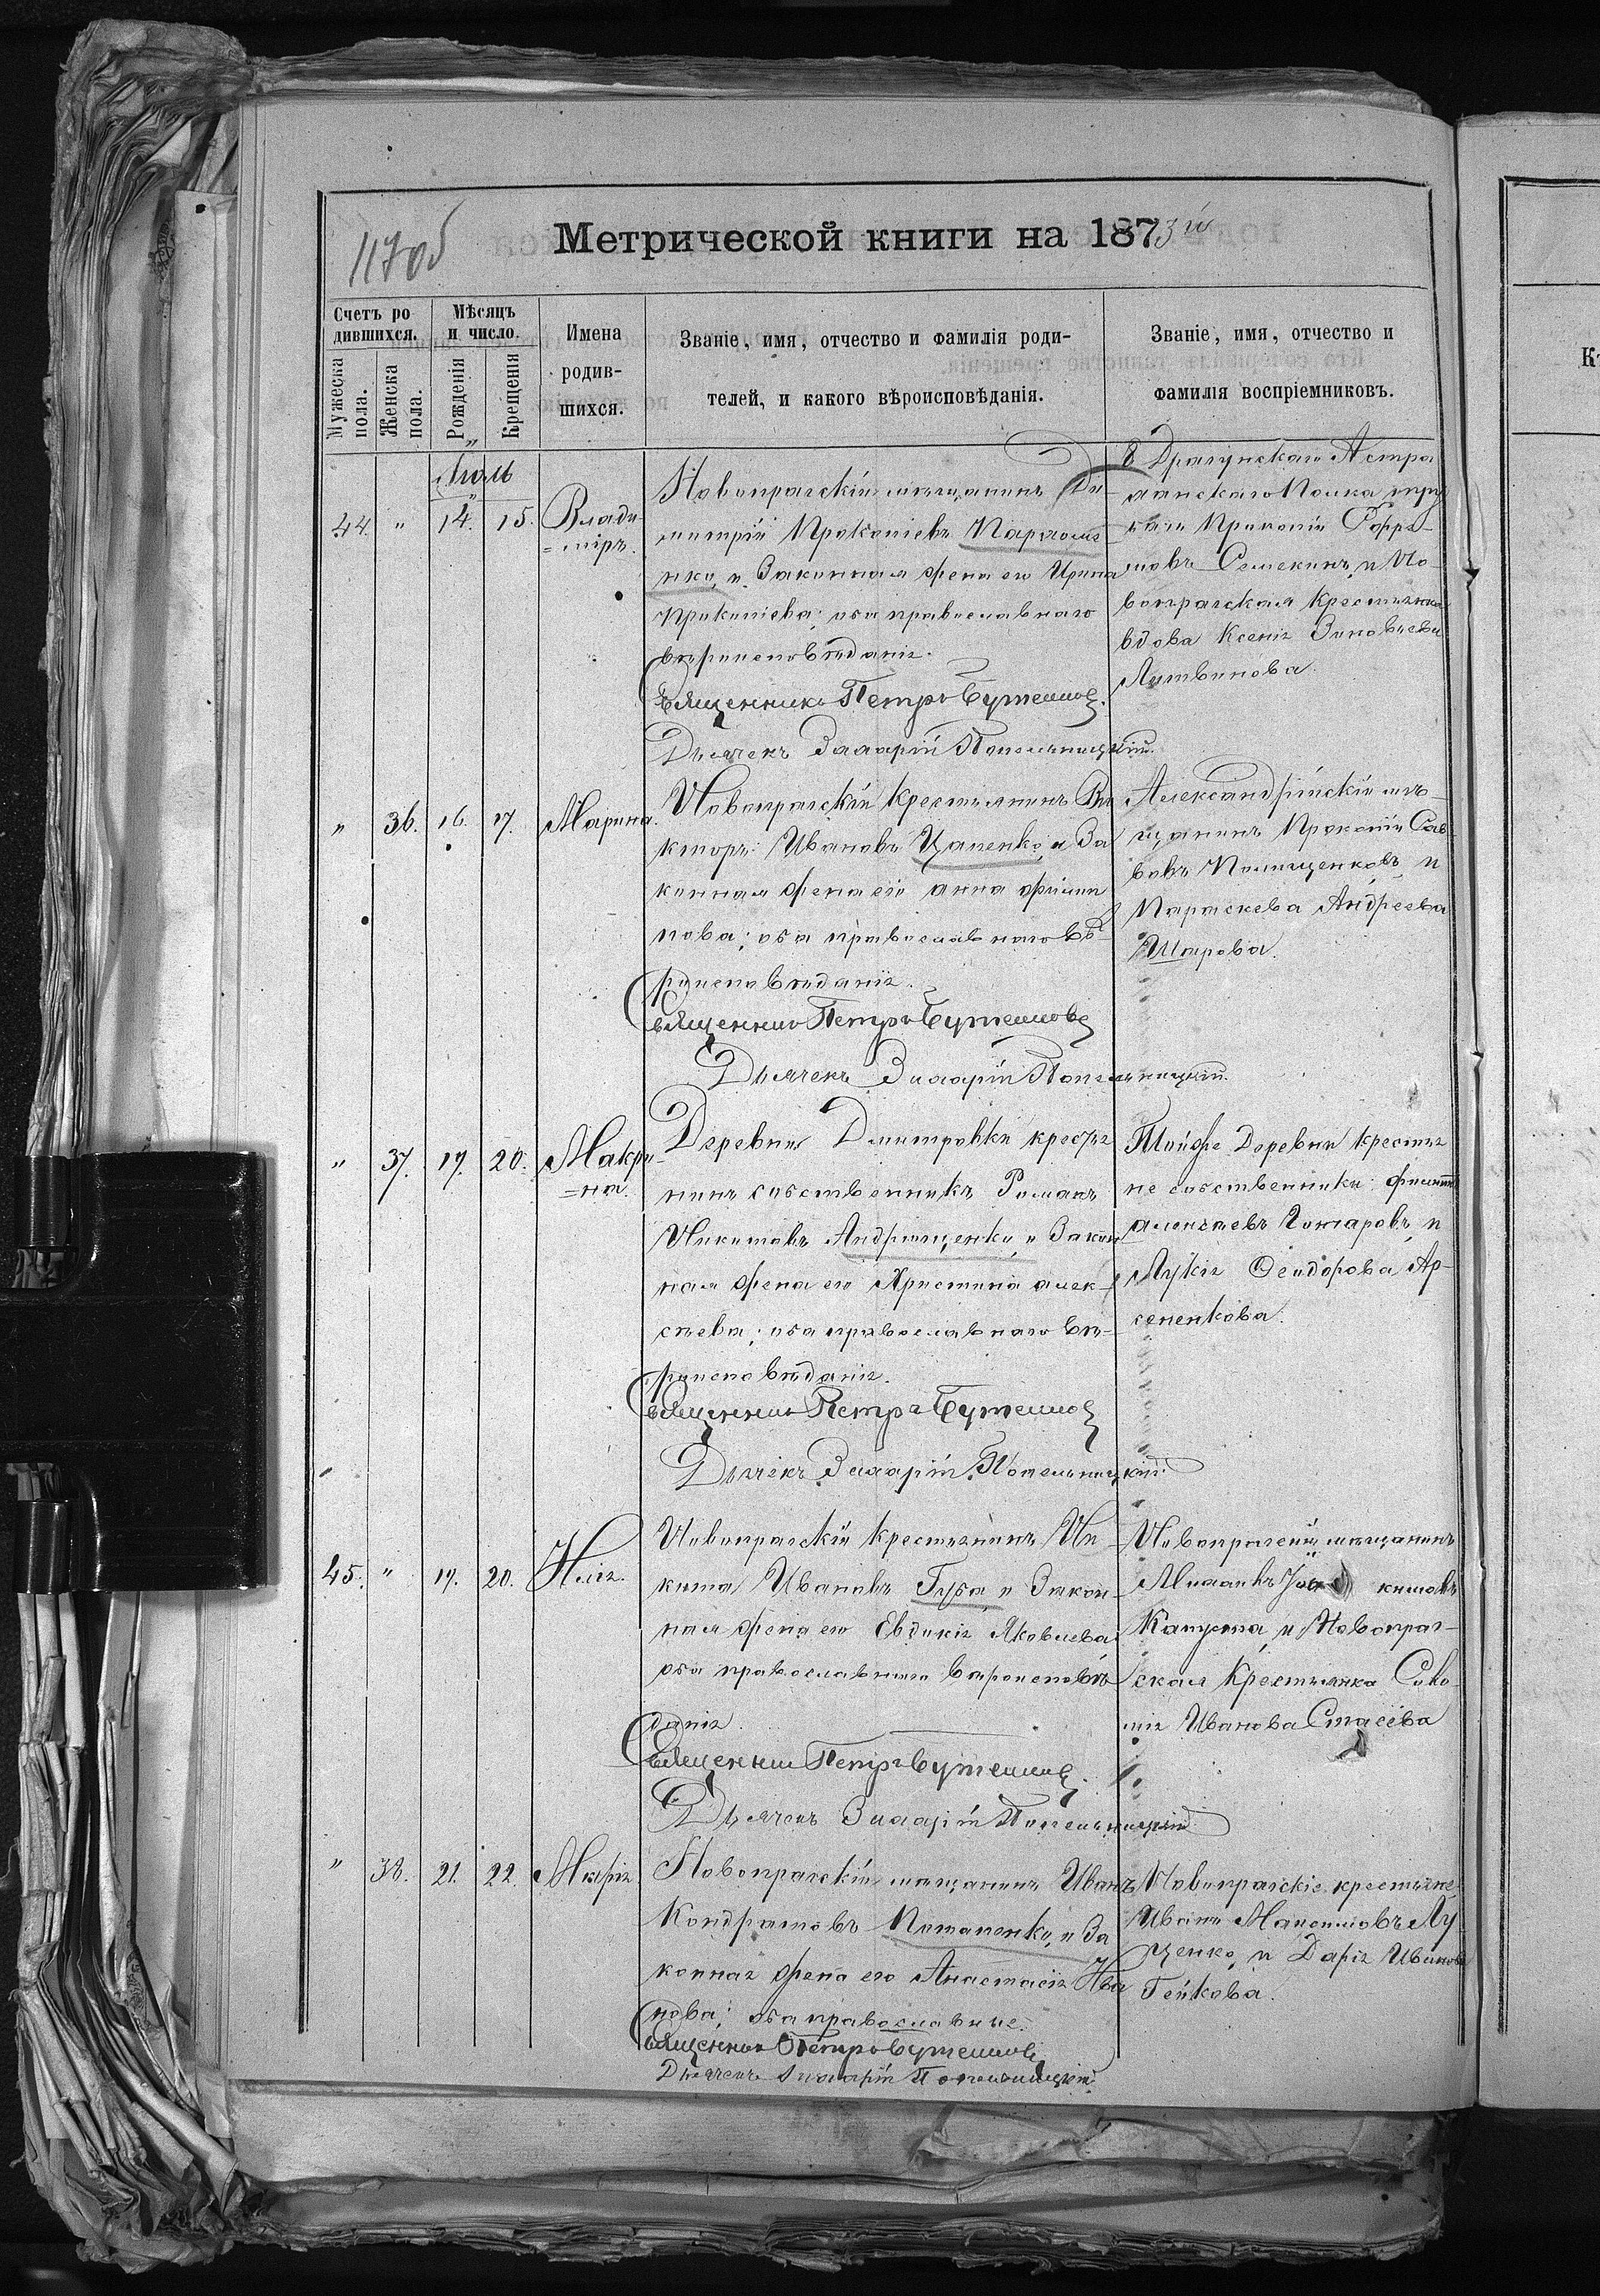 1170б
Метрической книги на 1873й
Счетъ ро
дившихся.
Мѣсяцъ
и число.
Имена
родив-
шихся.
Званіе, имя, отчество и фамилія роди-
телей, и какого вѣроисповѣданія.
Званіе, имя, отчество и
фамилія воспріемниковъ.
Мужеска
пола.
Женска
пола.
Рожденія
Крещенія
Іюль
44. " 14. 15.
Влади
=міръ.
Новопрагскій мѣщанинъ Ди-
митрій Прокопіевъ
нко, и Законная жена его Ирина
Прокопіева; оба православнаго
вѣроисповѣданія.
Священникъ Петръ
Дьячекъ Иларій Попельницкій.
8 Драгунскаго Астра
ханскаго Полка
Прокопій
Семекинъ, и Но-
вопрагская Крестьянка
вдова Ксенія Зиновіева
Литвинова.
" 36. 16. 17.
Марина.
Новопрагскій крестьянинъ Ви
кторъ Ивановъ Цапенко, и За
конная жена его Анна Филип
пова; оба православнаго вѣ-
роисповѣданія.
Священникъ Петръ
Дьячекъ Иларій Попельницкій.
Александрійскій мѣ-
щанинъ Прокопій Сав-
вовъ и
Параскева Андреева
Шарова.
" 37. 19. 20.
Макри
=на.
Деревни Дмитровки крестья
нинъ собственникъ Романъ
Никитовъ Андрющенко, и Закон
ная жена его Христина Алек-
сѣева; оба православнаго вѣ-
роисповѣданія.
Священникъ Петръ
Дьячекъ Иларій Попельницкій.
Тойже Деревни крестья
не собственники: Филиппъ
и
Лукія Феодорова Ар-
сенкова.
45. " 19. 20.
Илія.
Новопрагскій крестьянинъ Ни
кита Ивановъ Губа, и Закон-
ная жена его Евдокія Яковлева
оба православнаго вѣроисповѣ
данія.
Священникъ Петръ
Дьячекъ Иларій Попельницкій
Новопрагскій мѣщанинъ
Михаилъ
Капуста, и Новопраг-
ская Крестьянка Соло-
мія Иванова Стасева
" 38. 21. 22.
Марія
Новопрагскій мѣщанинъ Иванъ
Кондратовъ Потапенко, и За
конная жена его Анастасія Ива
нова; оба православные.
Священникъ Петръ
Дьячекъ Иларій Попельницкій.
Новопрагскіе крестьяне
Иванъ Лу-
ценко, и Дарія Иванова
Гейкова.